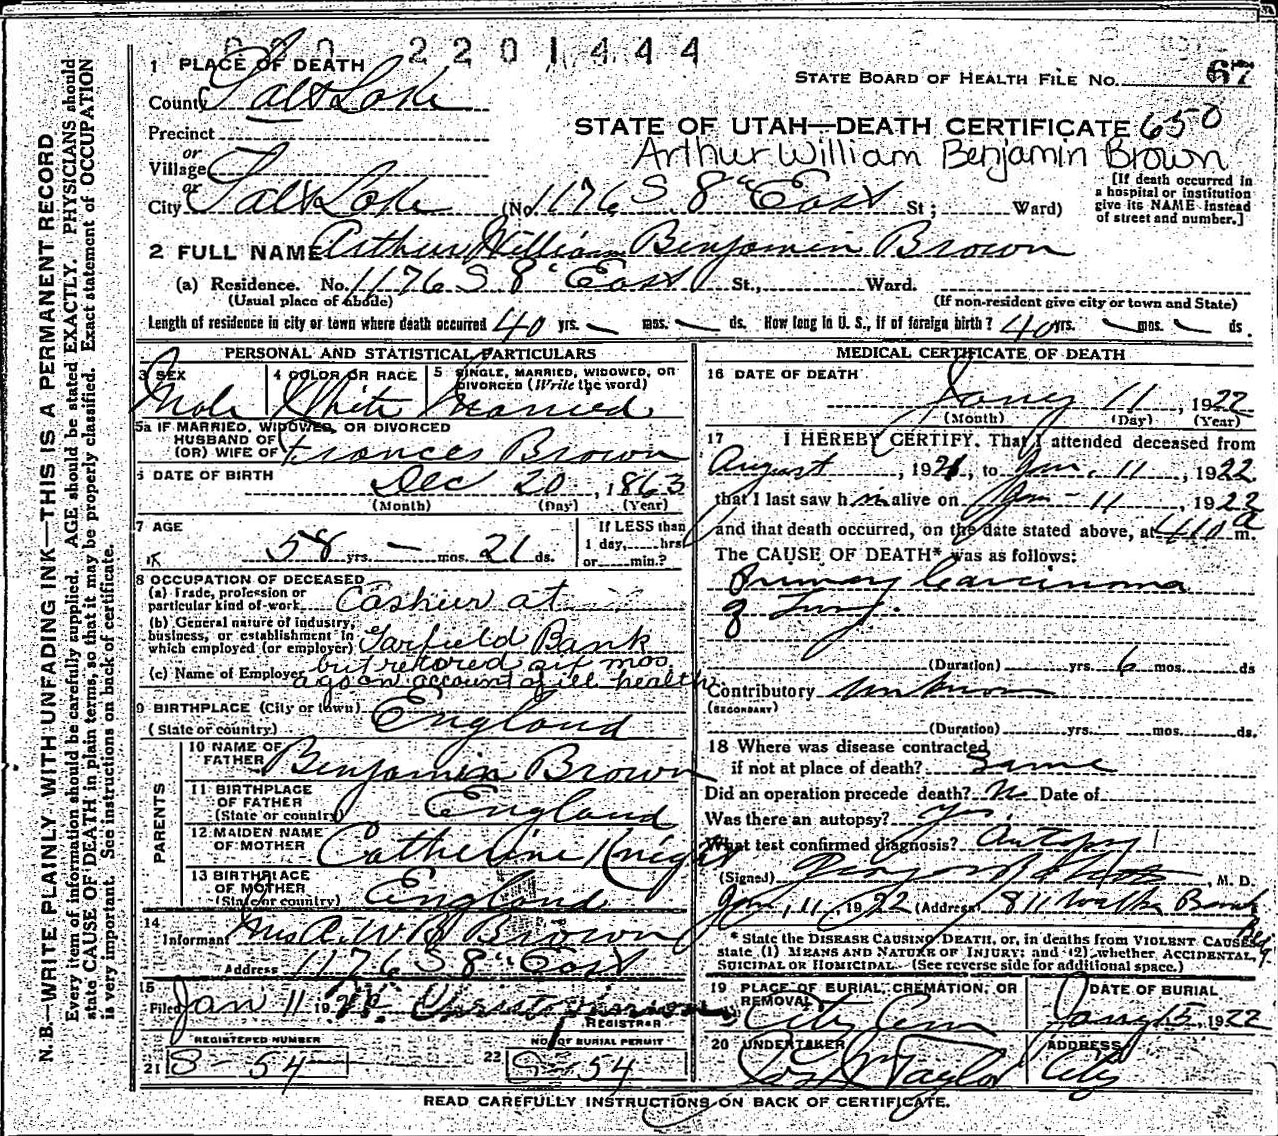 2201444
1 PLACE OF DEATH
STATE BOARD OF HEALTH FILE NO. 67
County Salt Lake
Precinct
STATE OF UTAH—DEATH CERTIFICATE 650
or
Arthur William Benjamin Brown
Village
or
City Salt Lake (No. 1176 S 8" East St; Ward)
[If death occurred in a hospital or institution give its NAME instead of street and number.]
2 FULL NAME Arthur William Benjamin Brown
(a) Residence. No. 1176 S 8" East St., Ward.
(Usual place of abode) (If non-resident give city or town and State)
Length of residence in city or town where death occurred 40 yrs. — mos. — ds. How long in U. S., if of foreign birth? 40 yrs. — mos. — ds.
PERSONAL AND STATISTICAL PARTICULARS
3 SEX 4 COLOR OR RACE 5 SINGLE, MARRIED, WIDOWED, OR DIVORCED (Write the word)
Male White Married
5a IF MARRIED, WIDOWED, OR DIVORCED
HUSBAND OF
(OR) WIFE OF Frances Brown
6 DATE OF BIRTH Dec 20, 1863
(Month) (Day) (Year)
7 AGE If LESS than
58 yrs. — mos. 21 ds. 1 day, hrs
or min.?
8 OCCUPATION OF DECEASED
(a) Trade, profession or particular kind of work Cashier at
(b) General nature of industry, business, or establishment in which employed (or employer) Garfield Bank
(c) Name of Employer but retired six mos.
ago on account of ill health
9 BIRTHPLACE (City or town)
(State or country) England
PARENTS
10 NAME OF FATHER Benjamin Brown
11 BIRTHPLACE OF FATHER (State or country) England
12 MAIDEN NAME OF MOTHER Catherine Knight
13 BIRTHPLACE OF MOTHER (State or country) England
14 Informant Mrs A. W. B. Brown
Address 1176 S 8" East
15 Filed Jan 11 1922
REGISTRAR
REGISTERED NUMBER NO. OF BURIAL PERMIT
21 S-54 22 S-54
MEDICAL CERTIFICATE OF DEATH
16 DATE OF DEATH
Jany 11, 1922
(Month) (Day) (Year)
17 I HEREBY CERTIFY, That I attended deceased from
August, 1921, to Jan. 11, 1922
that I last saw him alive on Jan - 11, 1922
and that death occurred, on the date stated above, at 4 10 a m.
The CAUSE OF DEATH* was as follows:
Primary Carcinoma
of Lung.
(Duration) yrs. 6 mos. ds
Contributory Unknown
(SECONDARY)
(Duration) yrs. mos. ds.
18 Where was disease contracted
if not at place of death? Same
Did an operation precede death? No Date of
Was there an autopsy? yes
What test confirmed diagnosis? Autopsy
(Signed) , M. D.
Jan, 11, 1922 (Address) 811 Walker Bank Bldg.
* State the DISEASE CAUSING DEATH, or, in deaths from VIOLENT CAUSES, state (1) MEANS AND NATURE OF INJURY; and (2) whether ACCIDENTAL, SUICIDAL OR HOMICIDAL. (See reverse side for additional space.)
19 PLACE OF BURIAL, CREMATION, OR REMOVAL DATE OF BURIAL
City Cem Jany 15, 1922
20 UNDERTAKER ADDRESS
Jos Wm Taylor City
READ CAREFULLY INSTRUCTIONS ON BACK OF CERTIFICATE.
N. B.—WRITE PLAINLY WITH UNFADING INK—THIS IS A PERMANENT RECORD
Every item of information should be carefully supplied. AGE should be stated EXACTLY. PHYSICIANS should
state CAUSE OF DEATH in plain terms, so that it may be properly classified. Exact statement of OCCUPATION
is very important. See instructions on back of certificate.